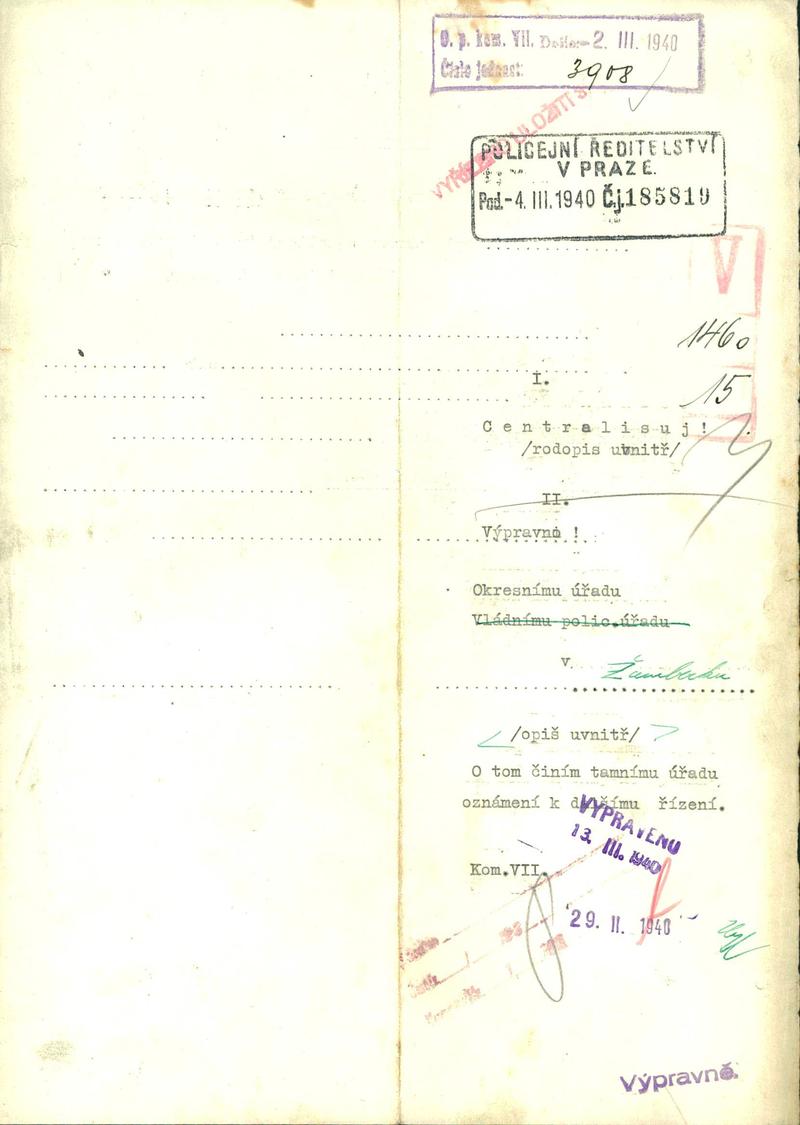 O. p. kom. VII. Došlo: -2. III. 1940
Číslo jednací: 3908
POLICEJNÍ ŘEDITELSTVÍ
V PRAZE.
Pod. -4. III. 1940 Č.j. 185819
V
1460
I.
15
Centralisuj!
/rodopis uvnitř/
II.
Výpravně !
Okresnímu úřadu
Vládnímu polic.úřadu
v Žamberku
/opiš uvnitř/
O tom činím tamnímu úřadu
oznámení k dalšímu řízení.
VYPRAVENO
13. III. 1940
Kom.VII.
29. II. 1940
Výpravně.